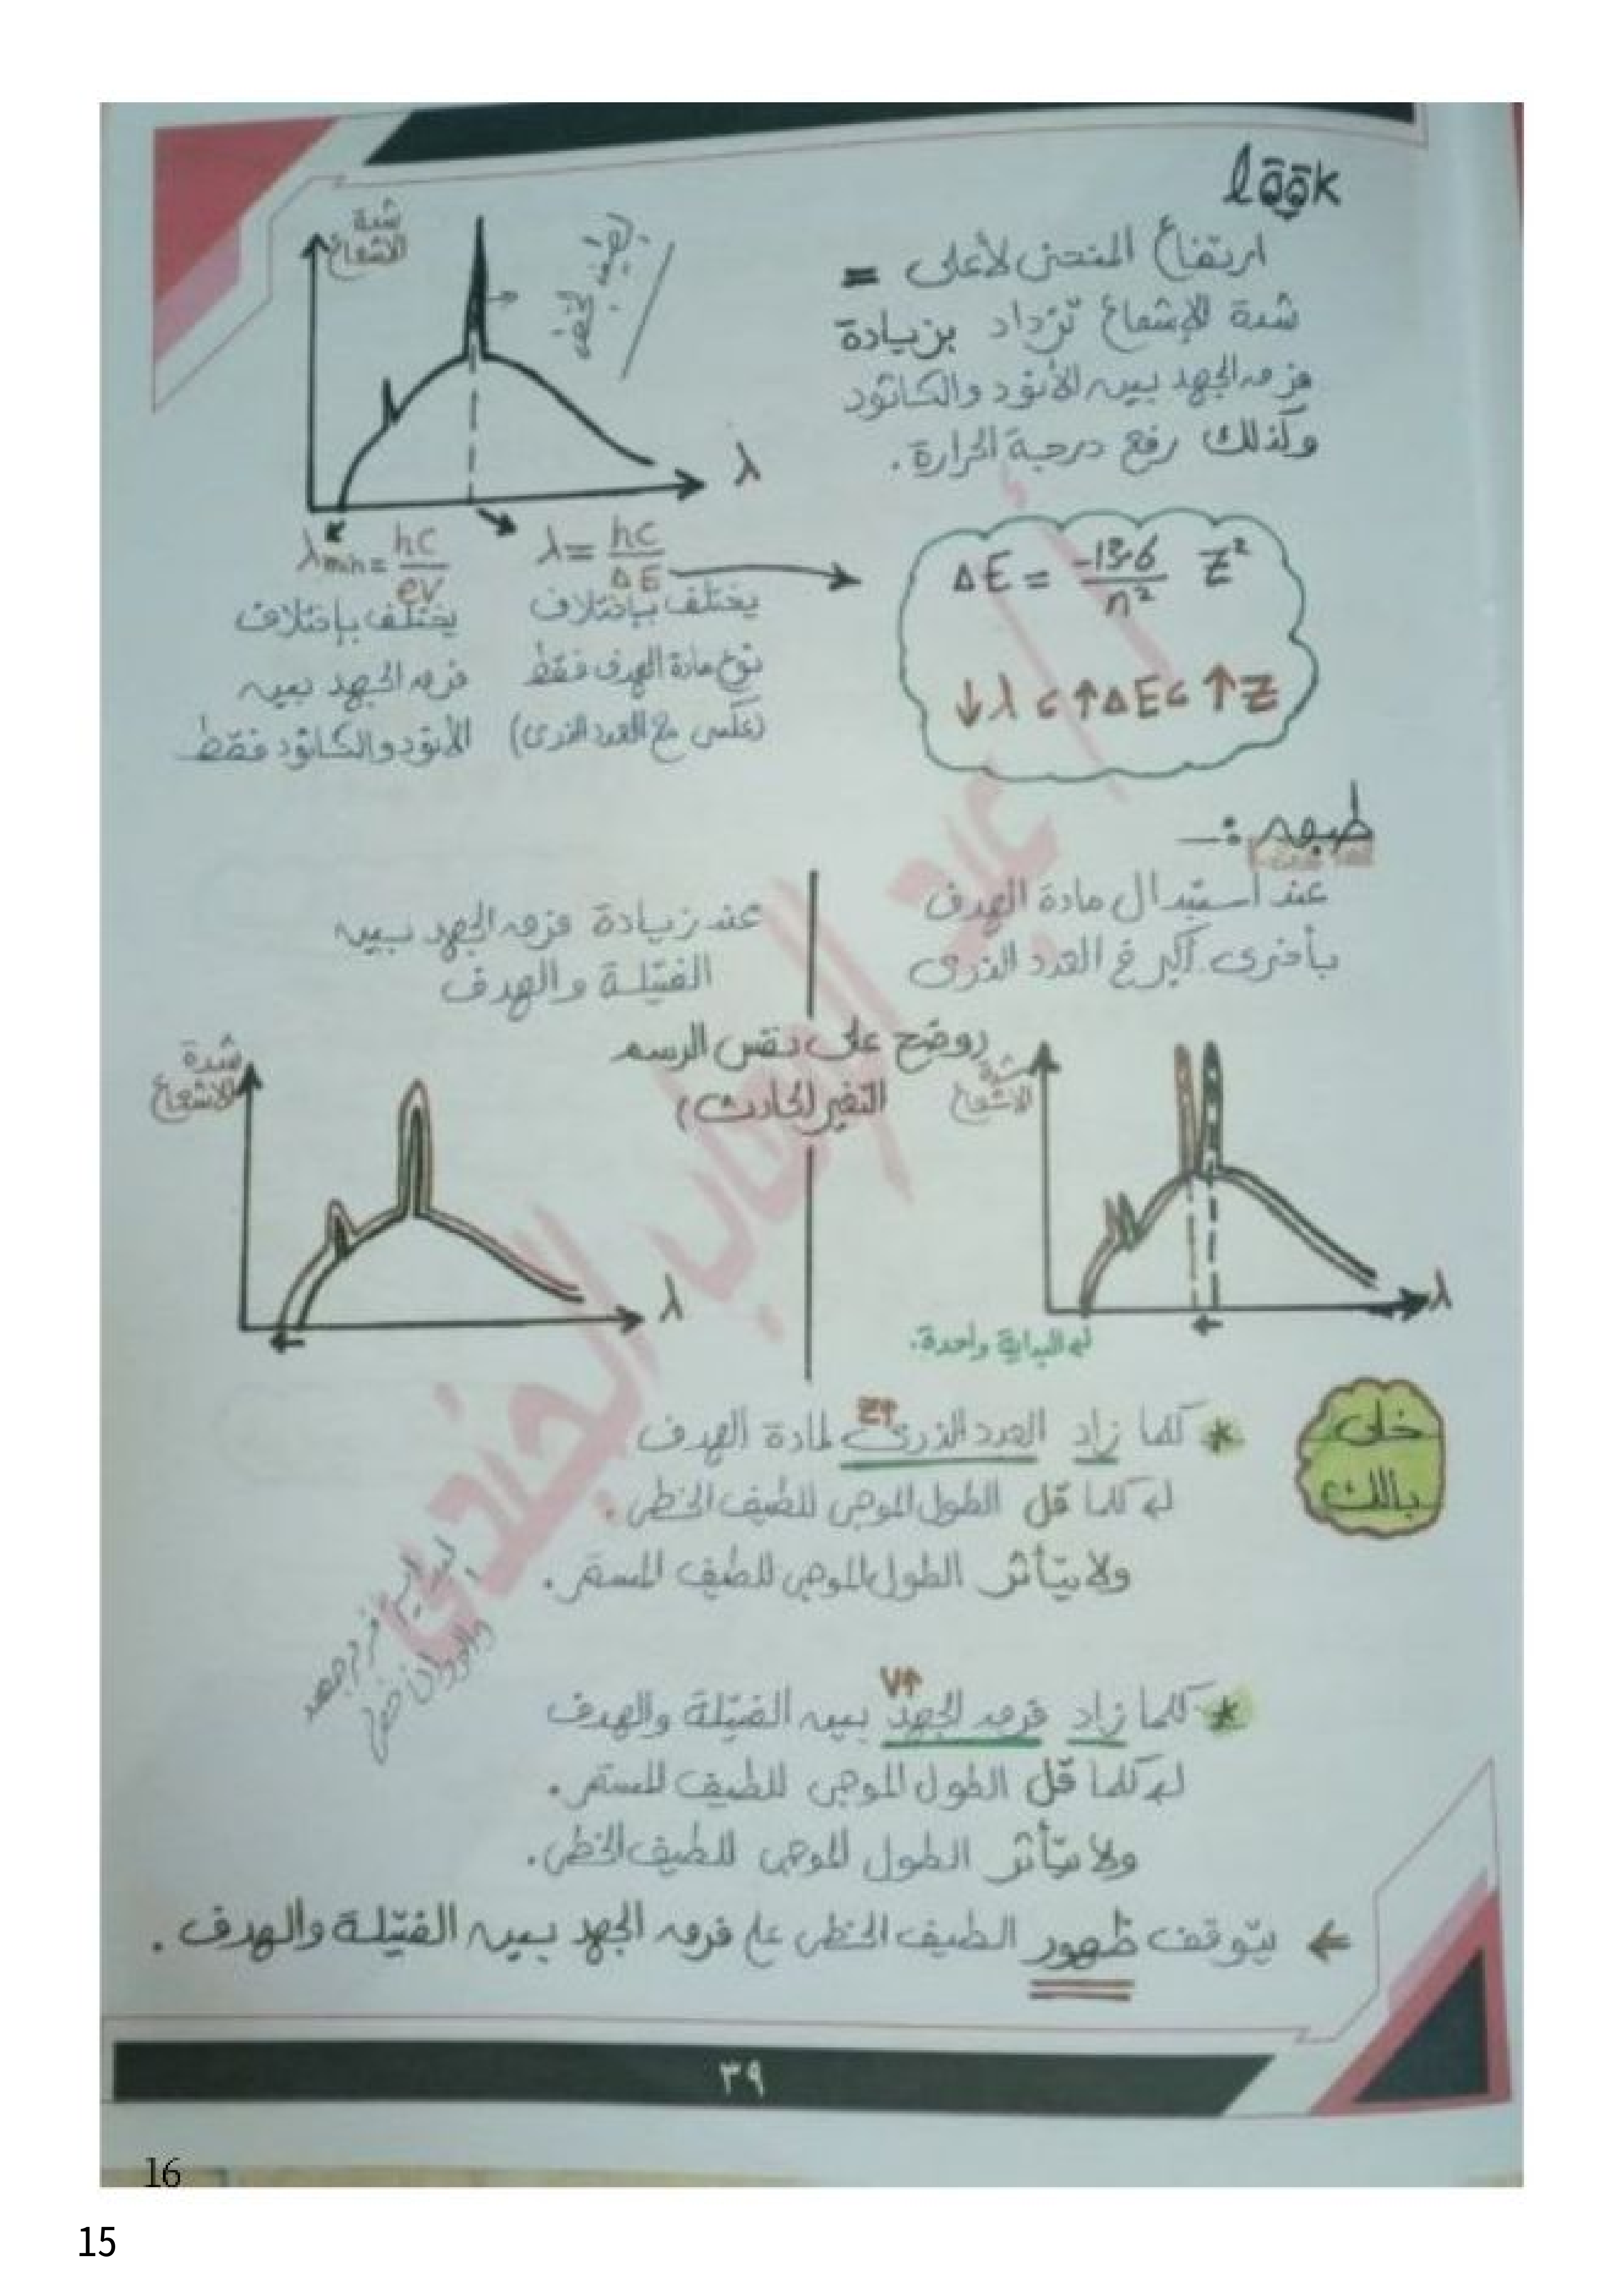 look
ارتفاع المنحنى لأعلى =
شدة الإشعاع تزداد بزيادة
فرق الجهد بين الأنود والكاثود
وكذلك رفع درجة الحرارة .
شدة
الاشعاع
λ
λmin = hc / eV
يختلف بإختلاف
فرق الجهد بين
الأنود والكاثود فقط
λ = hc / ΔE
يختلف بإختلاف
نوع مادة الهدف فقط
(عكسى مع العدد الذرى)
ΔE = -13.6 / n² Z²
↓λ ، ↑ΔE ، ↑Z
عند استبدال مادة الهدف
بأخرى أكبر فى العدد الذرى
عند زيادة فرق الجهد بين
الفتيلة والهدف
(وضح على نفس الرسم
التغير الحادث)
شدة
الاشعاع
λ
البداية واحدة.
شدة
الاشعاع
λ
خلى
بالك
* كلما زاد العدد الذرى Z↑ لمادة الهدف
كلما قل الطول الموجى للطيف الخطى .
ولا يتأثر الطول الموجى للطيف المستمر .
* كلما زاد فرق الجهد V↑ بين الفتيلة والهدف
كلما قل الطول الموجى للطيف المستمر .
ولا يتأثر الطول الموجى للطيف الخطى .
← يتوقف ظهور الطيف الخطى على فرق الجهد بين الفتيلة والهدف .
٣٩
16
15